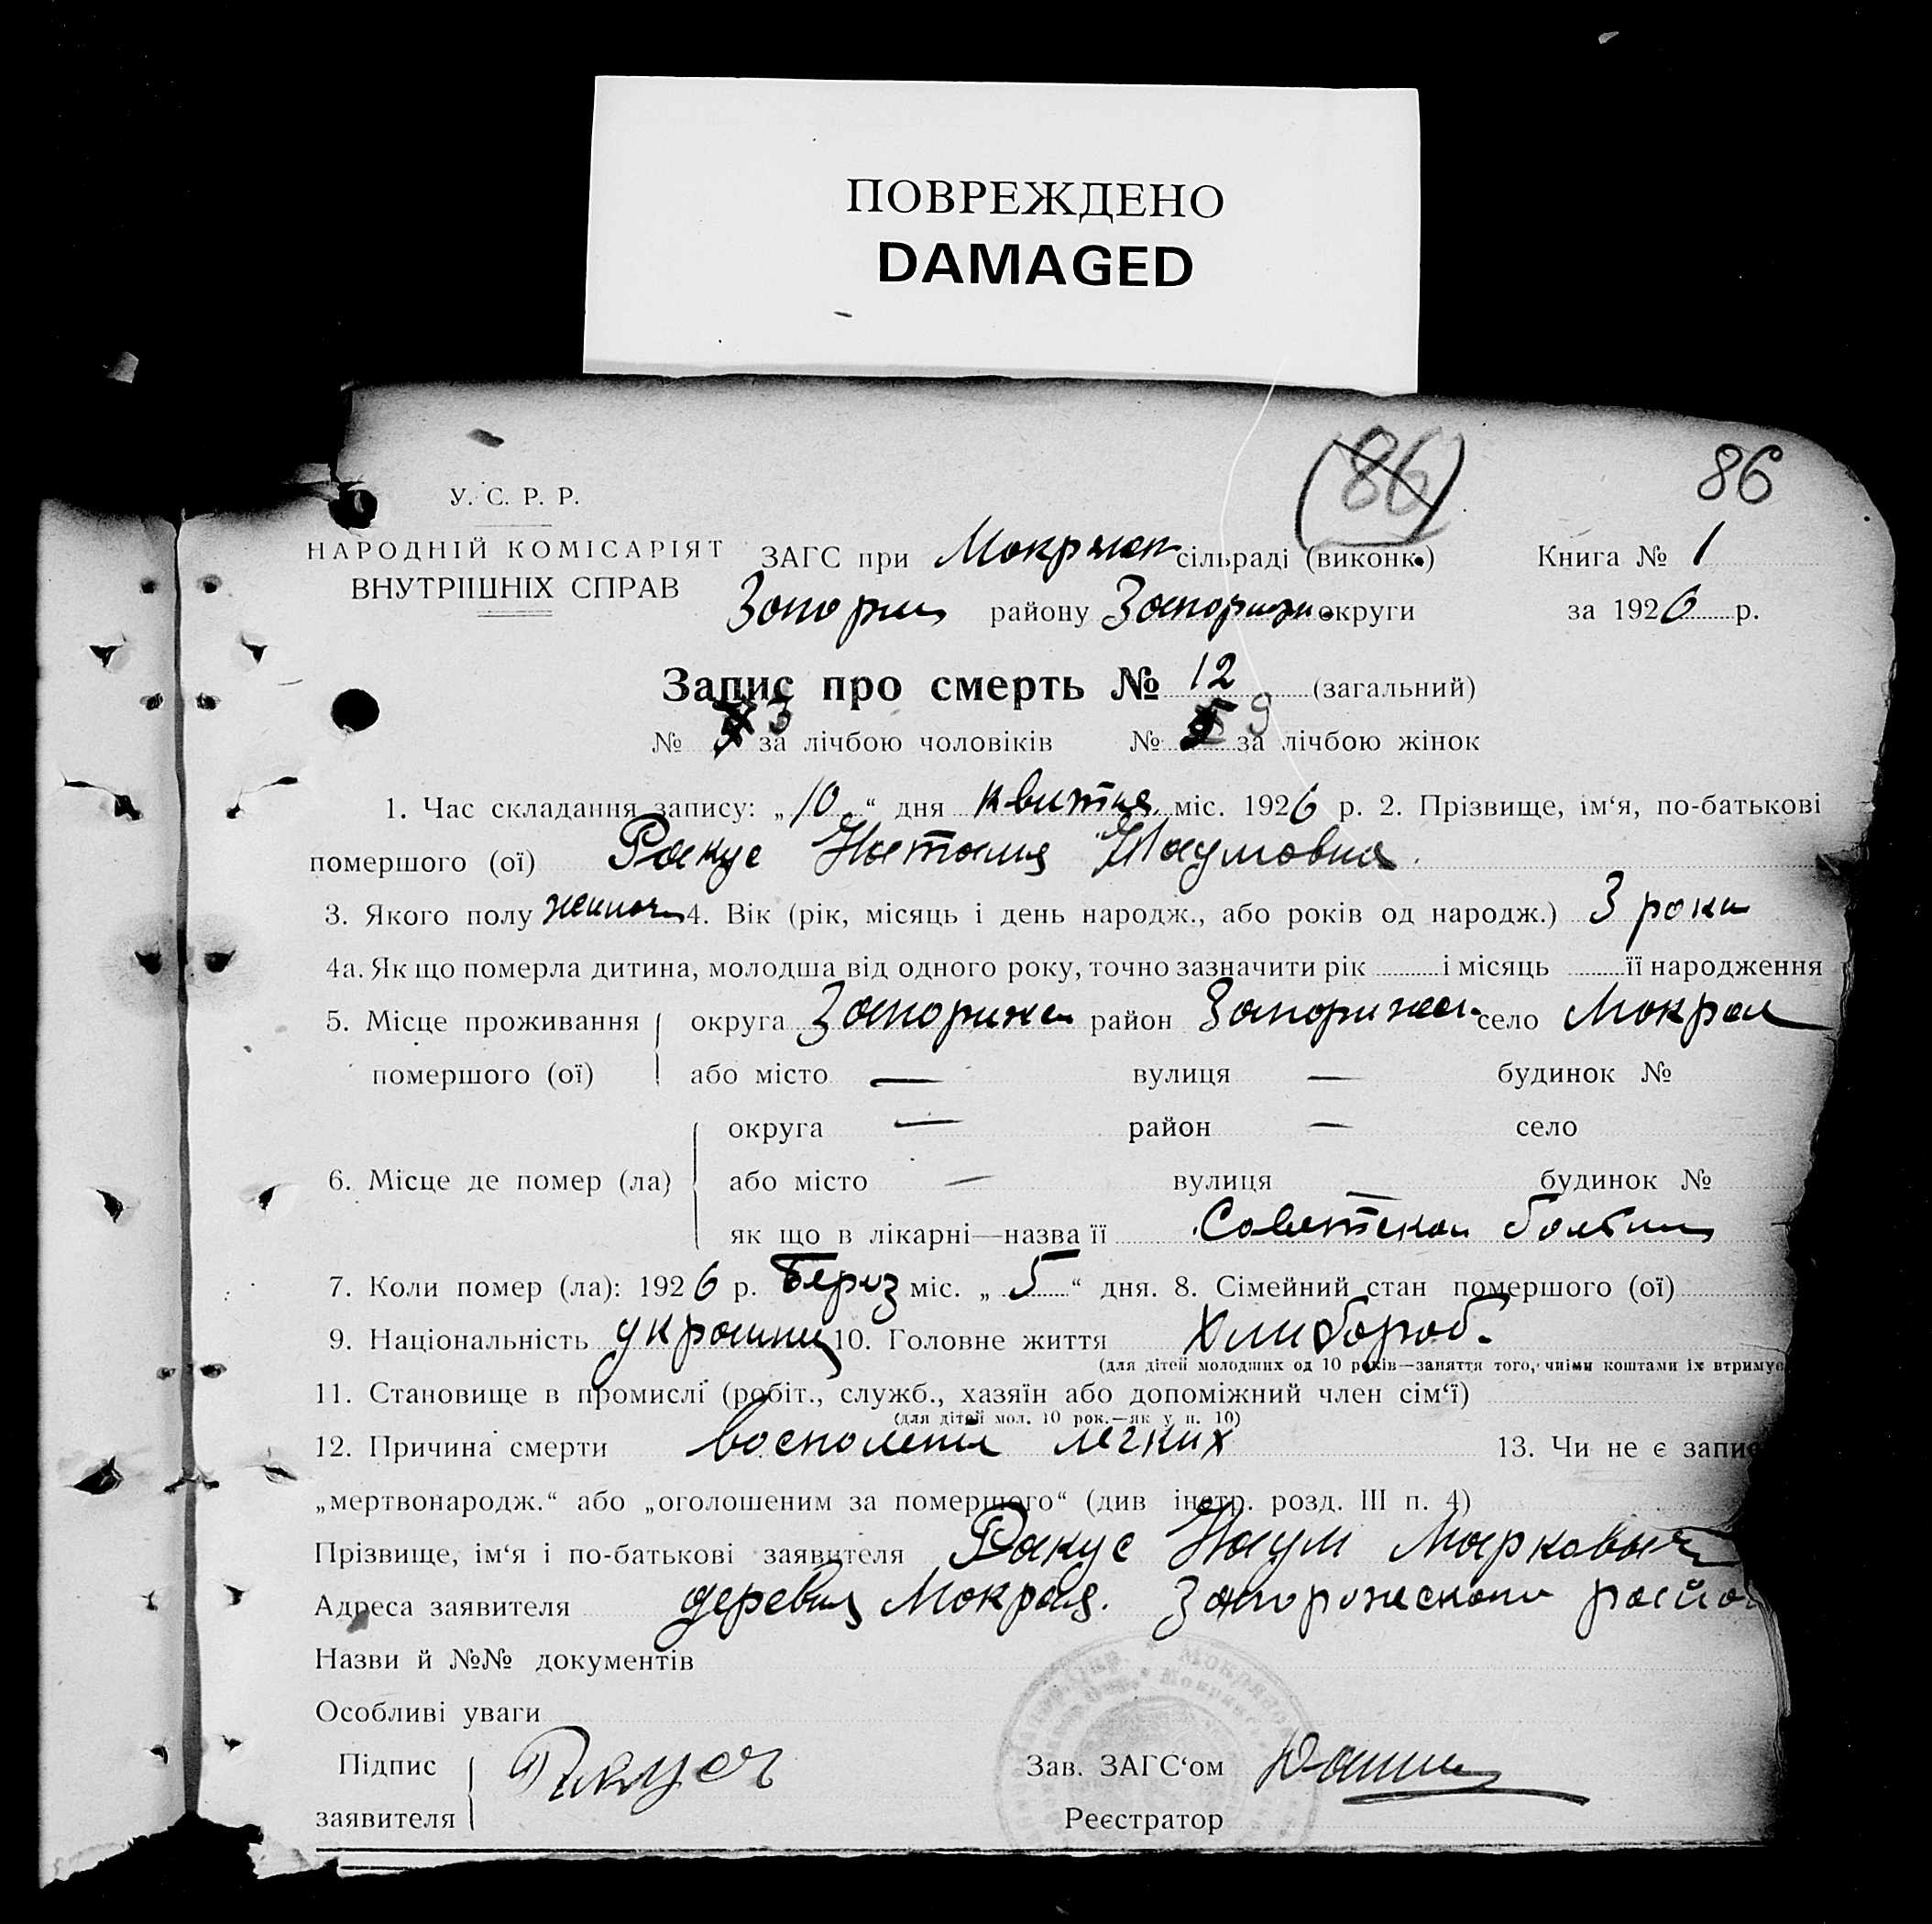 ПОВРЕЖДЕНО
DAMAGED
(86)
86
У. С. Р. Р.
НАРОДНІЙ КОМІСАРІЯТ
ВНУТРІШНІХ СПРАВ
ЗАГС при Мокрянск сільраді (виконк.) Книга № 1
району округи за 1926 р.
Запис про смерть № 12 (загальний)
№ 3 за лічбою чоловіків № 9 за лічбою жінок
1. Час складання запису: „10“ дня квитня міс. 1926 р. 2. Прізвище, ім‘я, по-батькові
помершого (ої) Ракус Наталия Наумовна.
3. Якого полу 4. Вік (рік, місяць і день народж., або років од народж.) 3 роки
4а. Як що померла дитина, молодша від одного року, точно зазначити рік і місяць її народження
5. Місце проживання округа Запориже район село Мокрая
помершого (ої) або місто — вулиця — будинок №
округа — район — село
6. Місце де помер (ла) або місто — вулиця — будинок №
як що в лікарні—назва її Советской
7. Коли помер (ла): 1926 р. Берез міс. „5“ дня. 8. Сімейний стан помершого (ої)
9. Національність 10. Головне життя Хлибороб.
(для дітей молодших од 10 років—заняття того, чиїми коштами їх втримує
11. Становище в промислі (робіт., служб., хазяїн або допоміжний член сім‘ї)
(для дітей мол. 10 рок.—як у п. 10)
12. Причина смерти воспаления легких 13. Чи не є запис
„мертвонародж.“ або „оголошеним за помершого“ (див інстр. розд. III п. 4)
Прізвище, ім‘я і по-батькові заявителя Ракус Наум Маркович
Адреса заявителя деревня Мокрая. Запорожского район
Назви й №№ документів
Особливі уваги
Підпис Зав. ЗАГС‘ом
заявителя Реєстратор